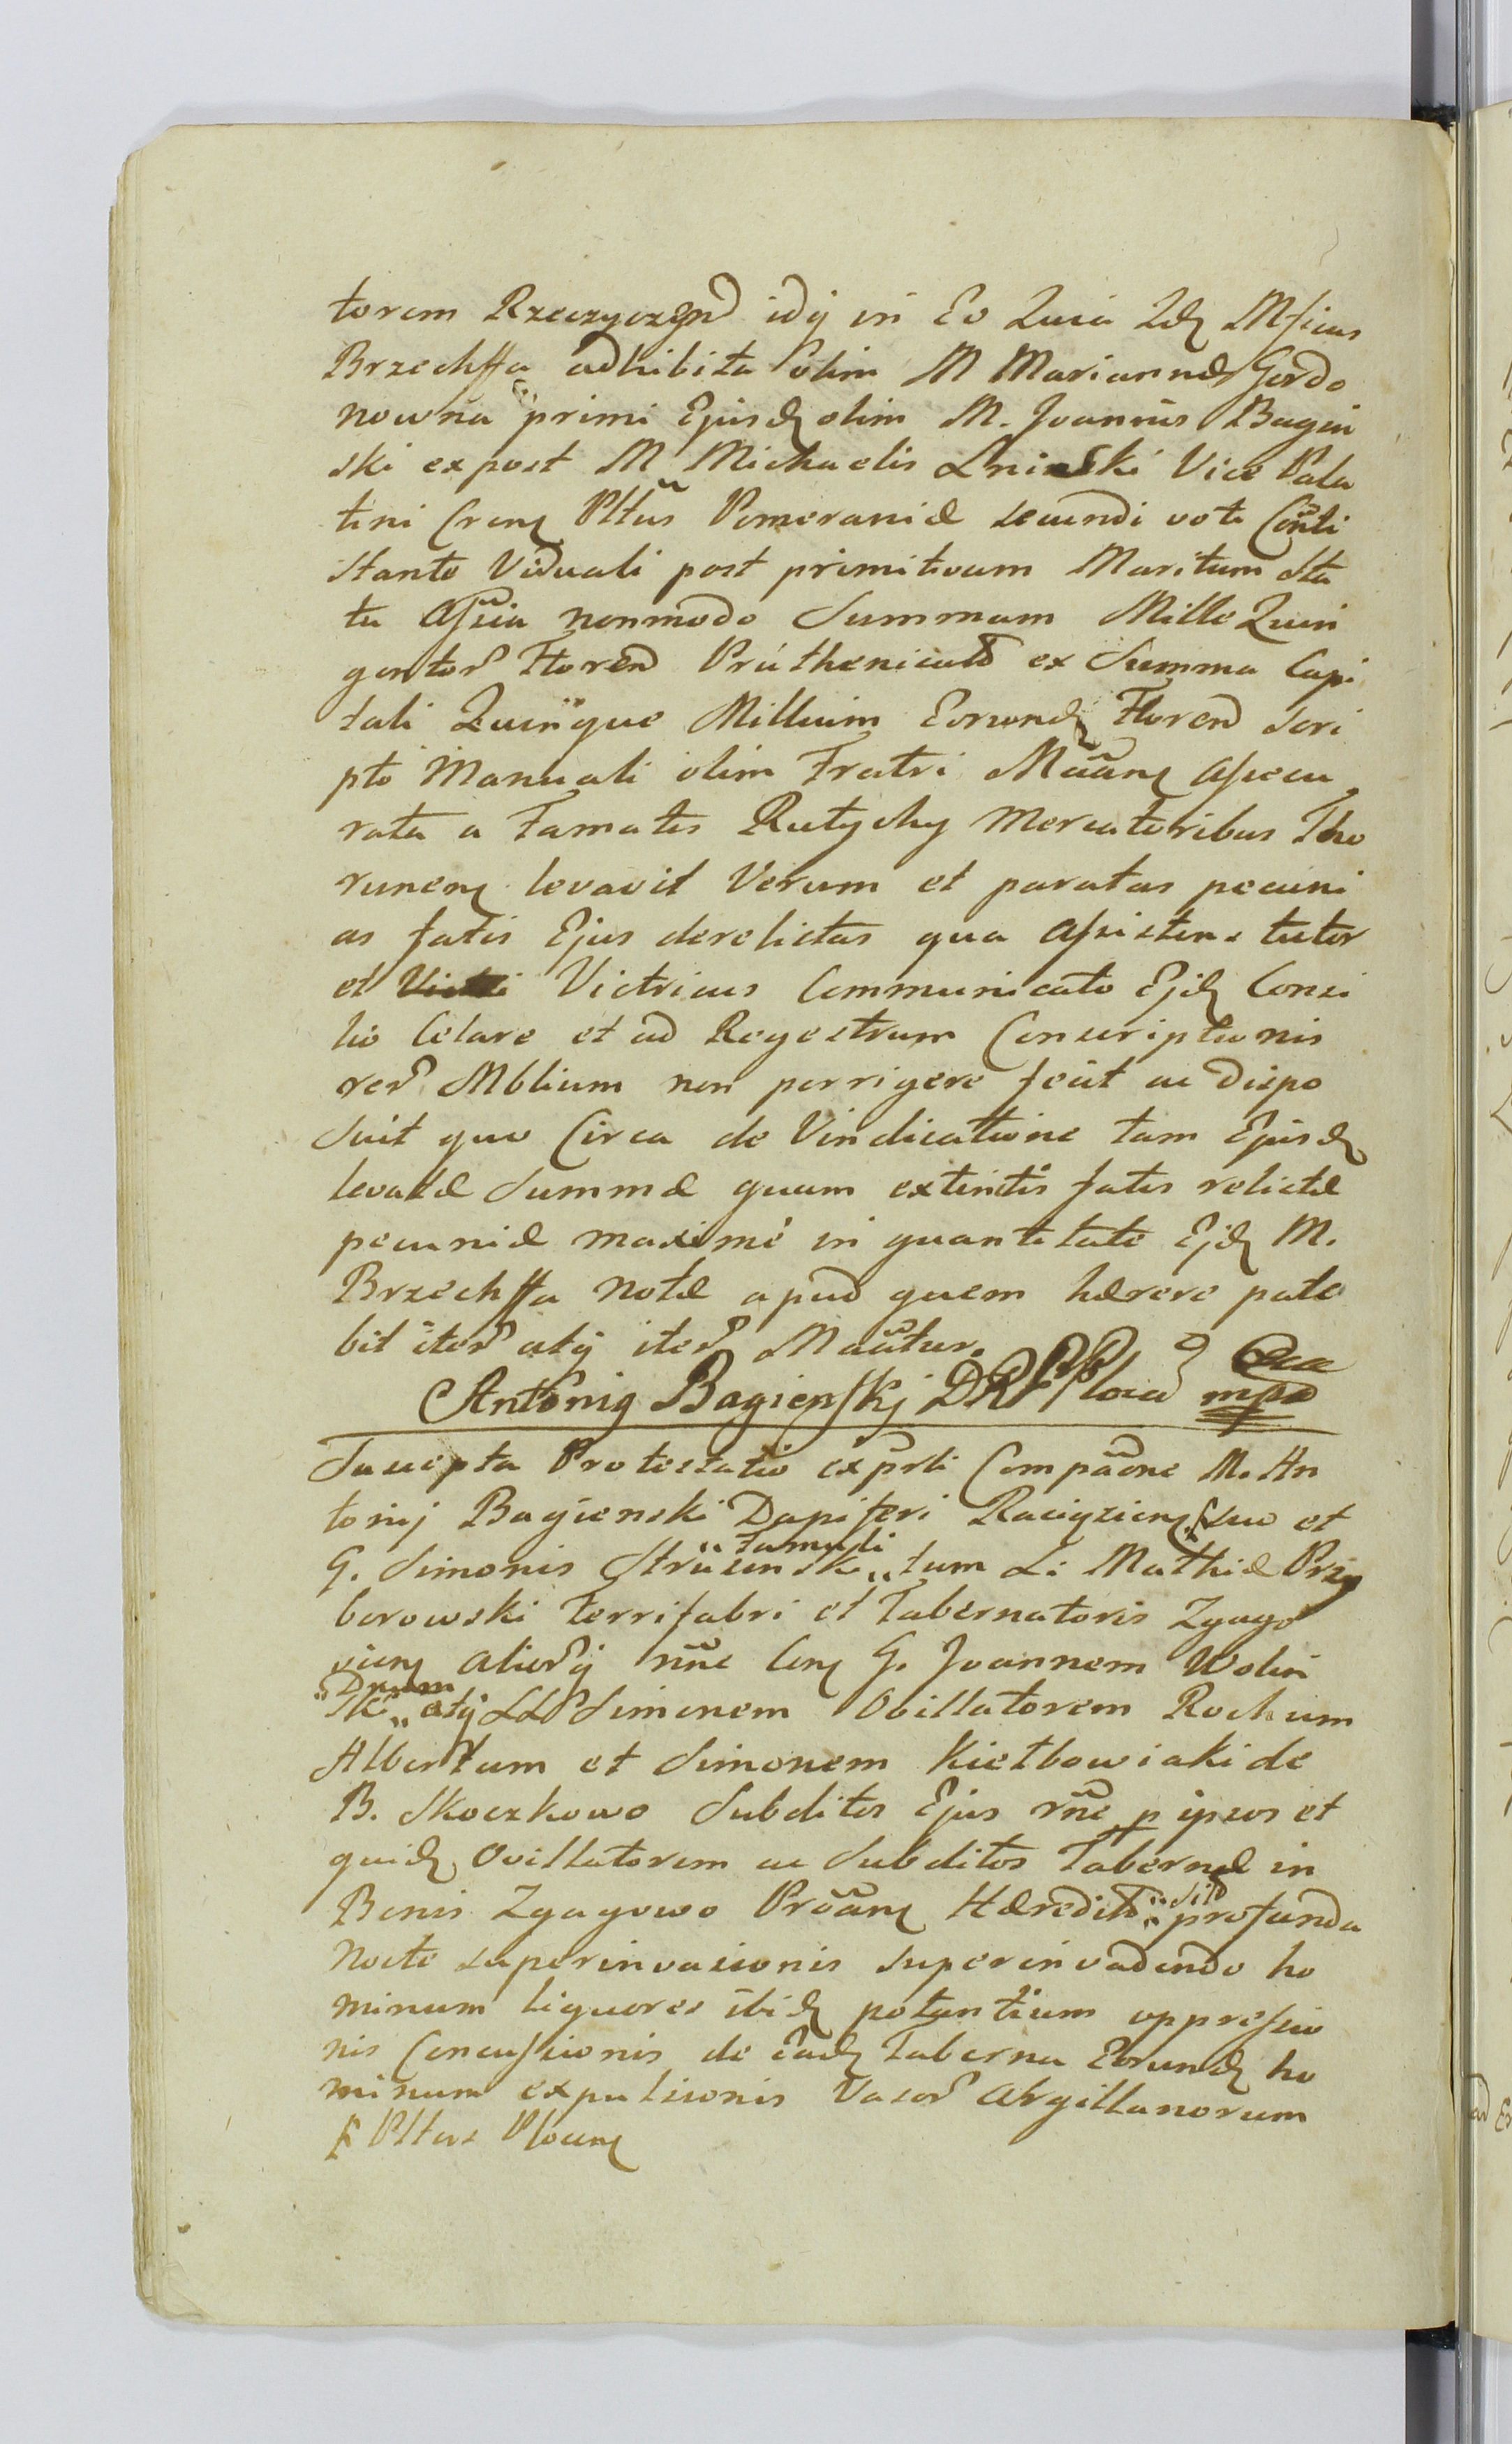 torem Rzeczyczgn idq in Eo Quia Idq Mficus
Brzechffa adhibita olim M Mariannæ Gordo
nowna primi Ejusdq olim M. Joannis Bagin
ski expost M Michaelis Lninski Vice Pala
tini Crenq Pltus Pomeraniæ secundi voti Conli
stante Viduali post primitivum Maritum Sta
tu Assia nonmodo Summam Mille Quin
gentor Floren Prúthenicali ex Summa Capi
tali Quinque Millium Eorundq Floren Scri
pto Manuali olim Fratri Maãnq assecu
rata a Famatis Rutychy Mercatoribus Tho
runenq levavit Verum et paratas pecuni
as fatis Ejus derelictas qua assistens tutor
et Victricus Communicato Ejdq Consi
lio Celare et ad Regestrum Conscriptionis
rer Mblium non porrigere fecit ac dispo
suit quo Circa de Vindicatione tam Ejusdq
levatæ Summæ quam extinctis fatis relictæ
pecuniæ maximé in quantitate Ejdq M.
Brzechffa notæ apud quem hærere pate
bit iter atq iter Maãtur.
Antonig Bagienskj DR mpa
Suscepta Protestatio ex prsti Compaõne M. An
tonij Bagienski Dapiferi Raciązienq suo et
famuli
G. Simonis Strusinski tum L: Mathiæ Przy
borowski Ferrifabri et Tabernatoris Zgago
vienq aliorq nñe Cenq G. Joannem Wolin
Dnum
ski atq LL Simonem Ovillatorem Rochum
Albertum et Simonem Kietbowiaki de
B. Skoczkowo Subditos Ejus rñe p ipsos et
quidq Ovillatorem ac Subditos Tabernæ in
Sitæ
Bonis Zgagowo Proãnq Hæredit profunda
nocte superinvasionis superinvadendo ho
minum liquores ibidq potantium oppressio
nis Concussionis de eadq Taberna Eorundq ho
minum expulsionis Vasor Argillanorum
Pltus Plocenq